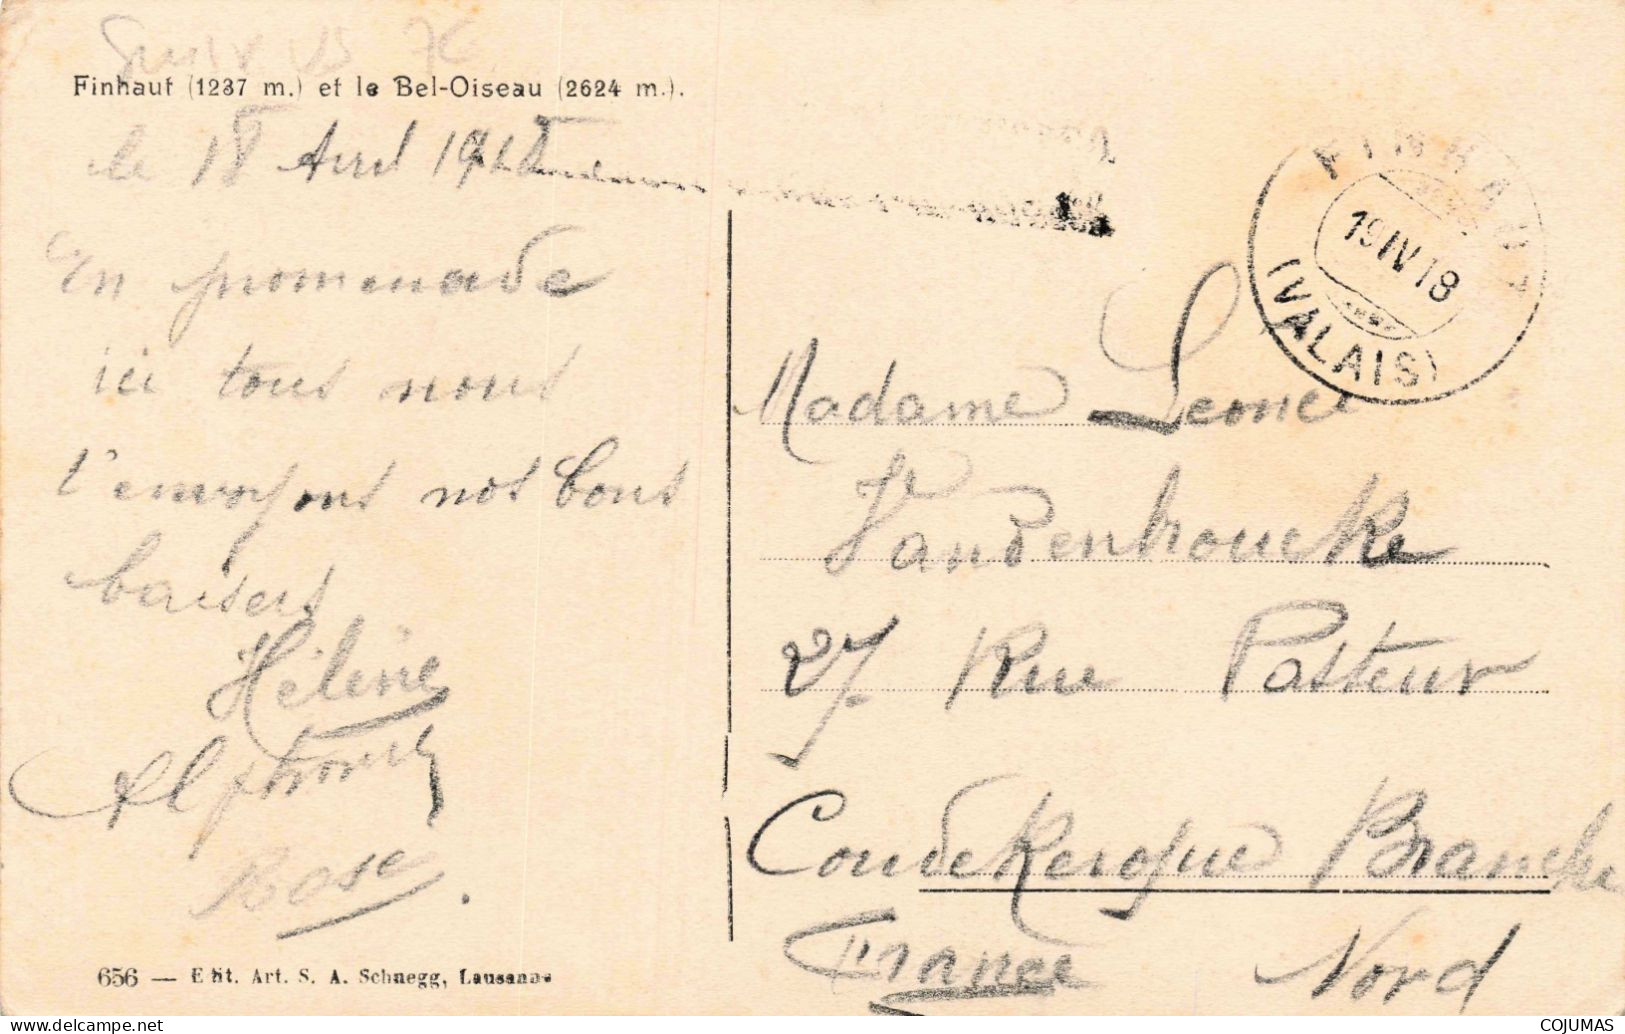 Finhaut (1237 m.) et le Bel-Oiseau (2624 m.).
le 18 Avril 1918
En promenade
ici tous nous
t'envoyons nos bons
baisers
Hélène
Alphonse
Rose.
656 — Edit. Art. S. A. Schnegg, Lausanne
FINHAUT
19 IV 18
(VALAIS)
Madame Leonce
Vandenhoucke
27 Rue Pasteur
Coudekerque Branche
France Nord
COJUMAS